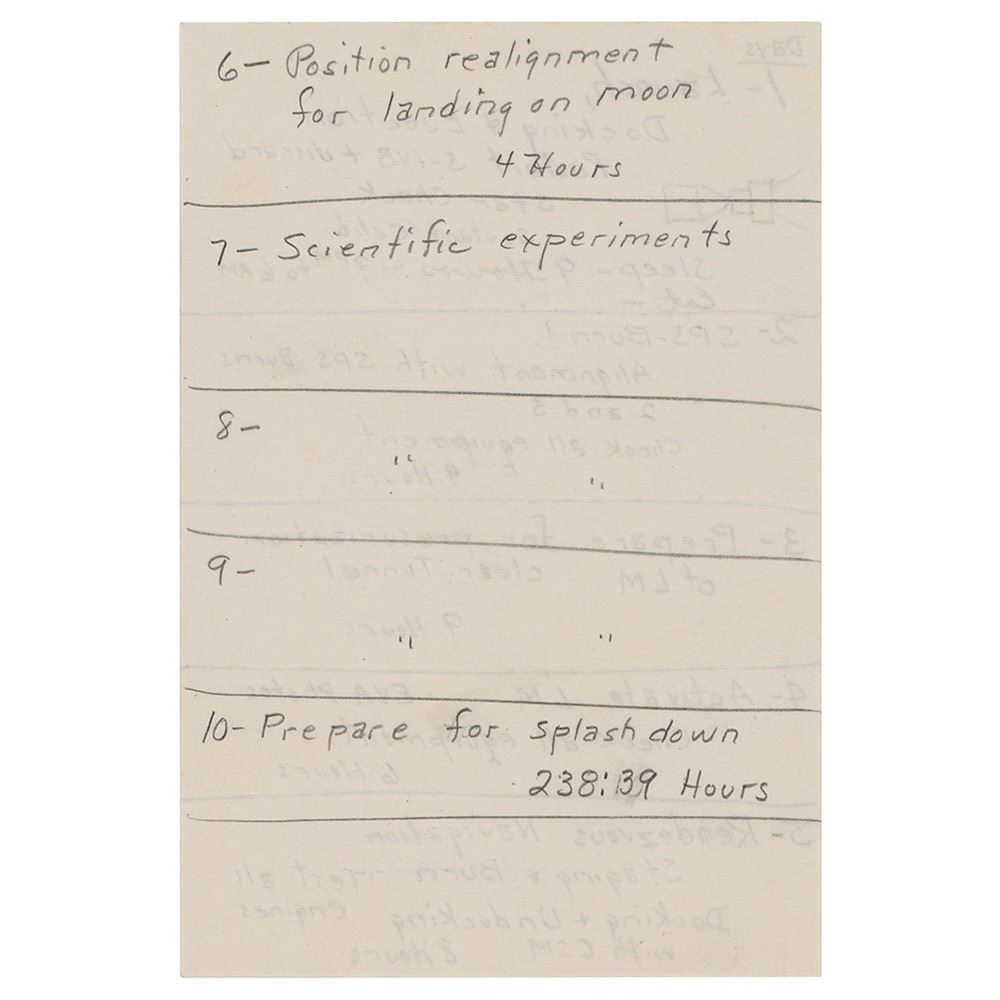 6- Position realignment
for landing on moon
4 Hours
7- Scientific experiments
8-
" "
9-
" "
10- Prepare for splash down
238:39 Hours